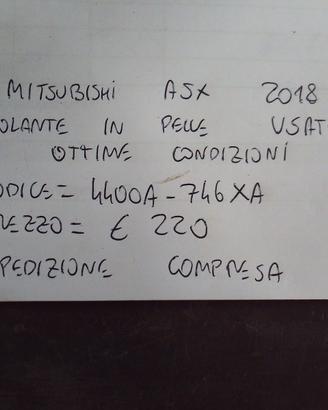 MITSUBISHI ASX 2018
OLANTE IN PELLE USAT
OTTIME CONDIZIONI
ODICE= 4400A-746XA
EZZO= € 220
PEDIZIONE COMPRESA